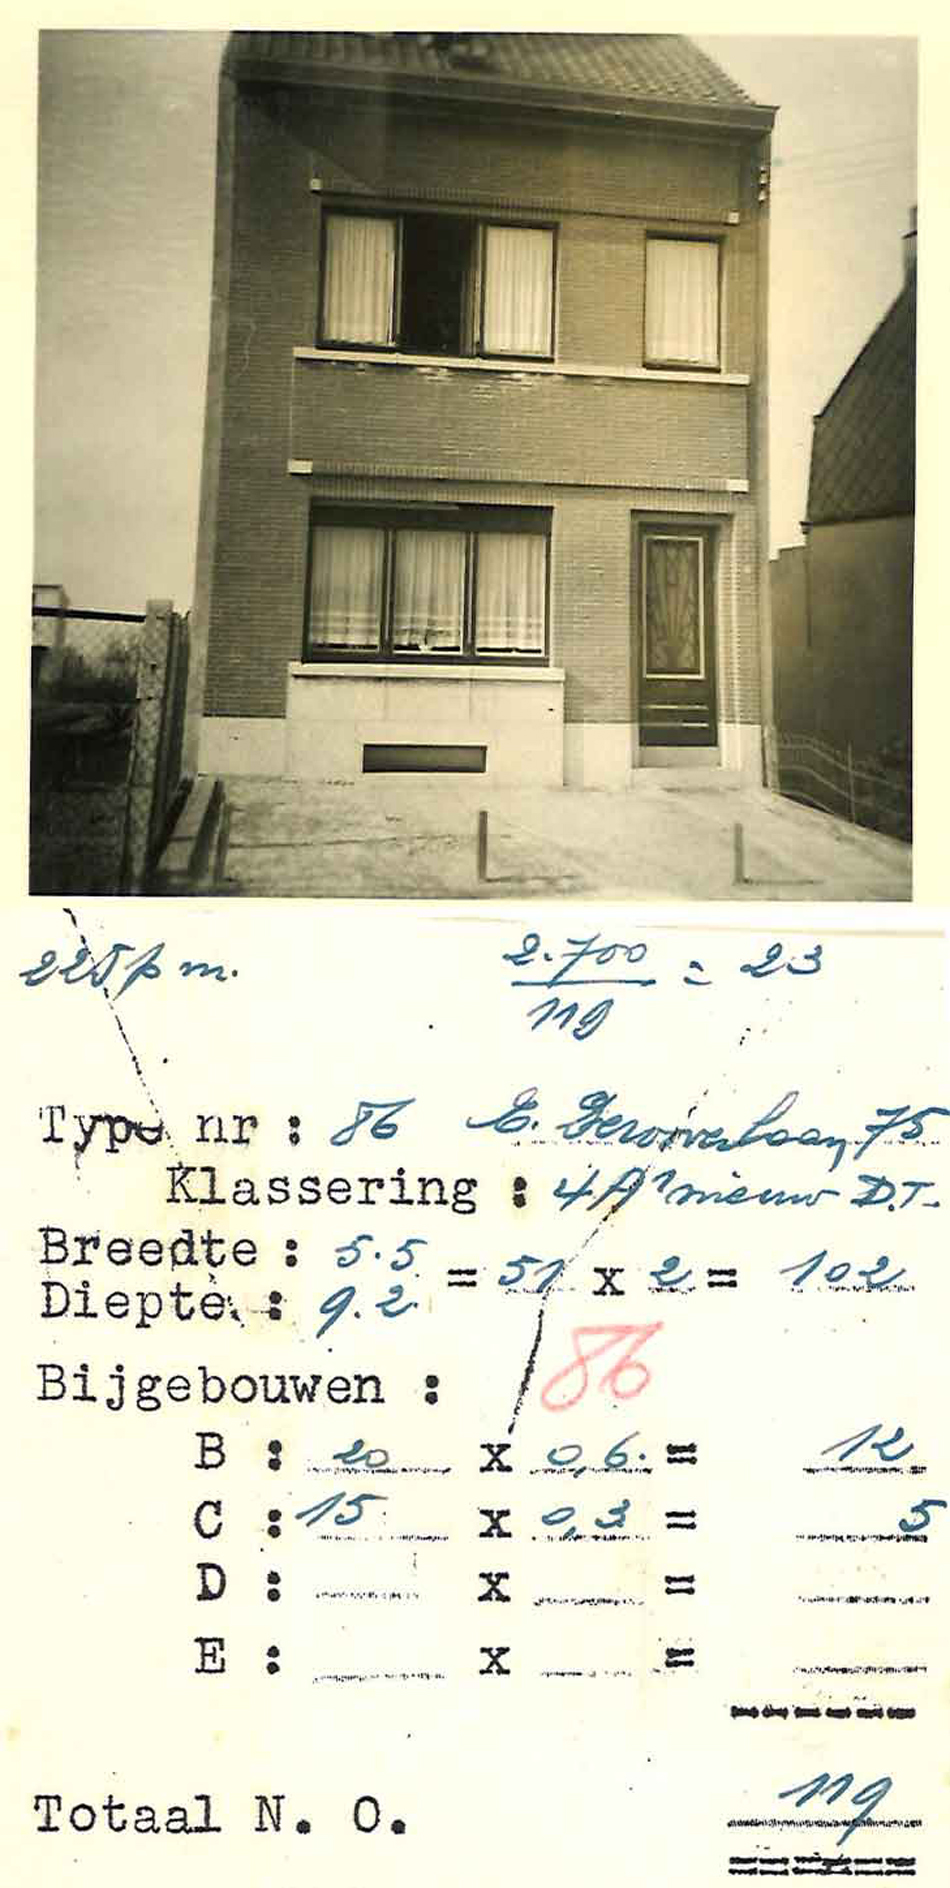 225 p m. 2.700 / 119 = 23
Type nr : 86 75
Klassering : 4A² nieuw D.T.
Breedte : 5.5
Diepte : 9.2 = 51 x 2 = 102
Bijgebouwen : 86
B : 20 x 0,6 = 12
C : 15 x 0,3 = 5
D : x =
E : x =
Totaal N. O. 119